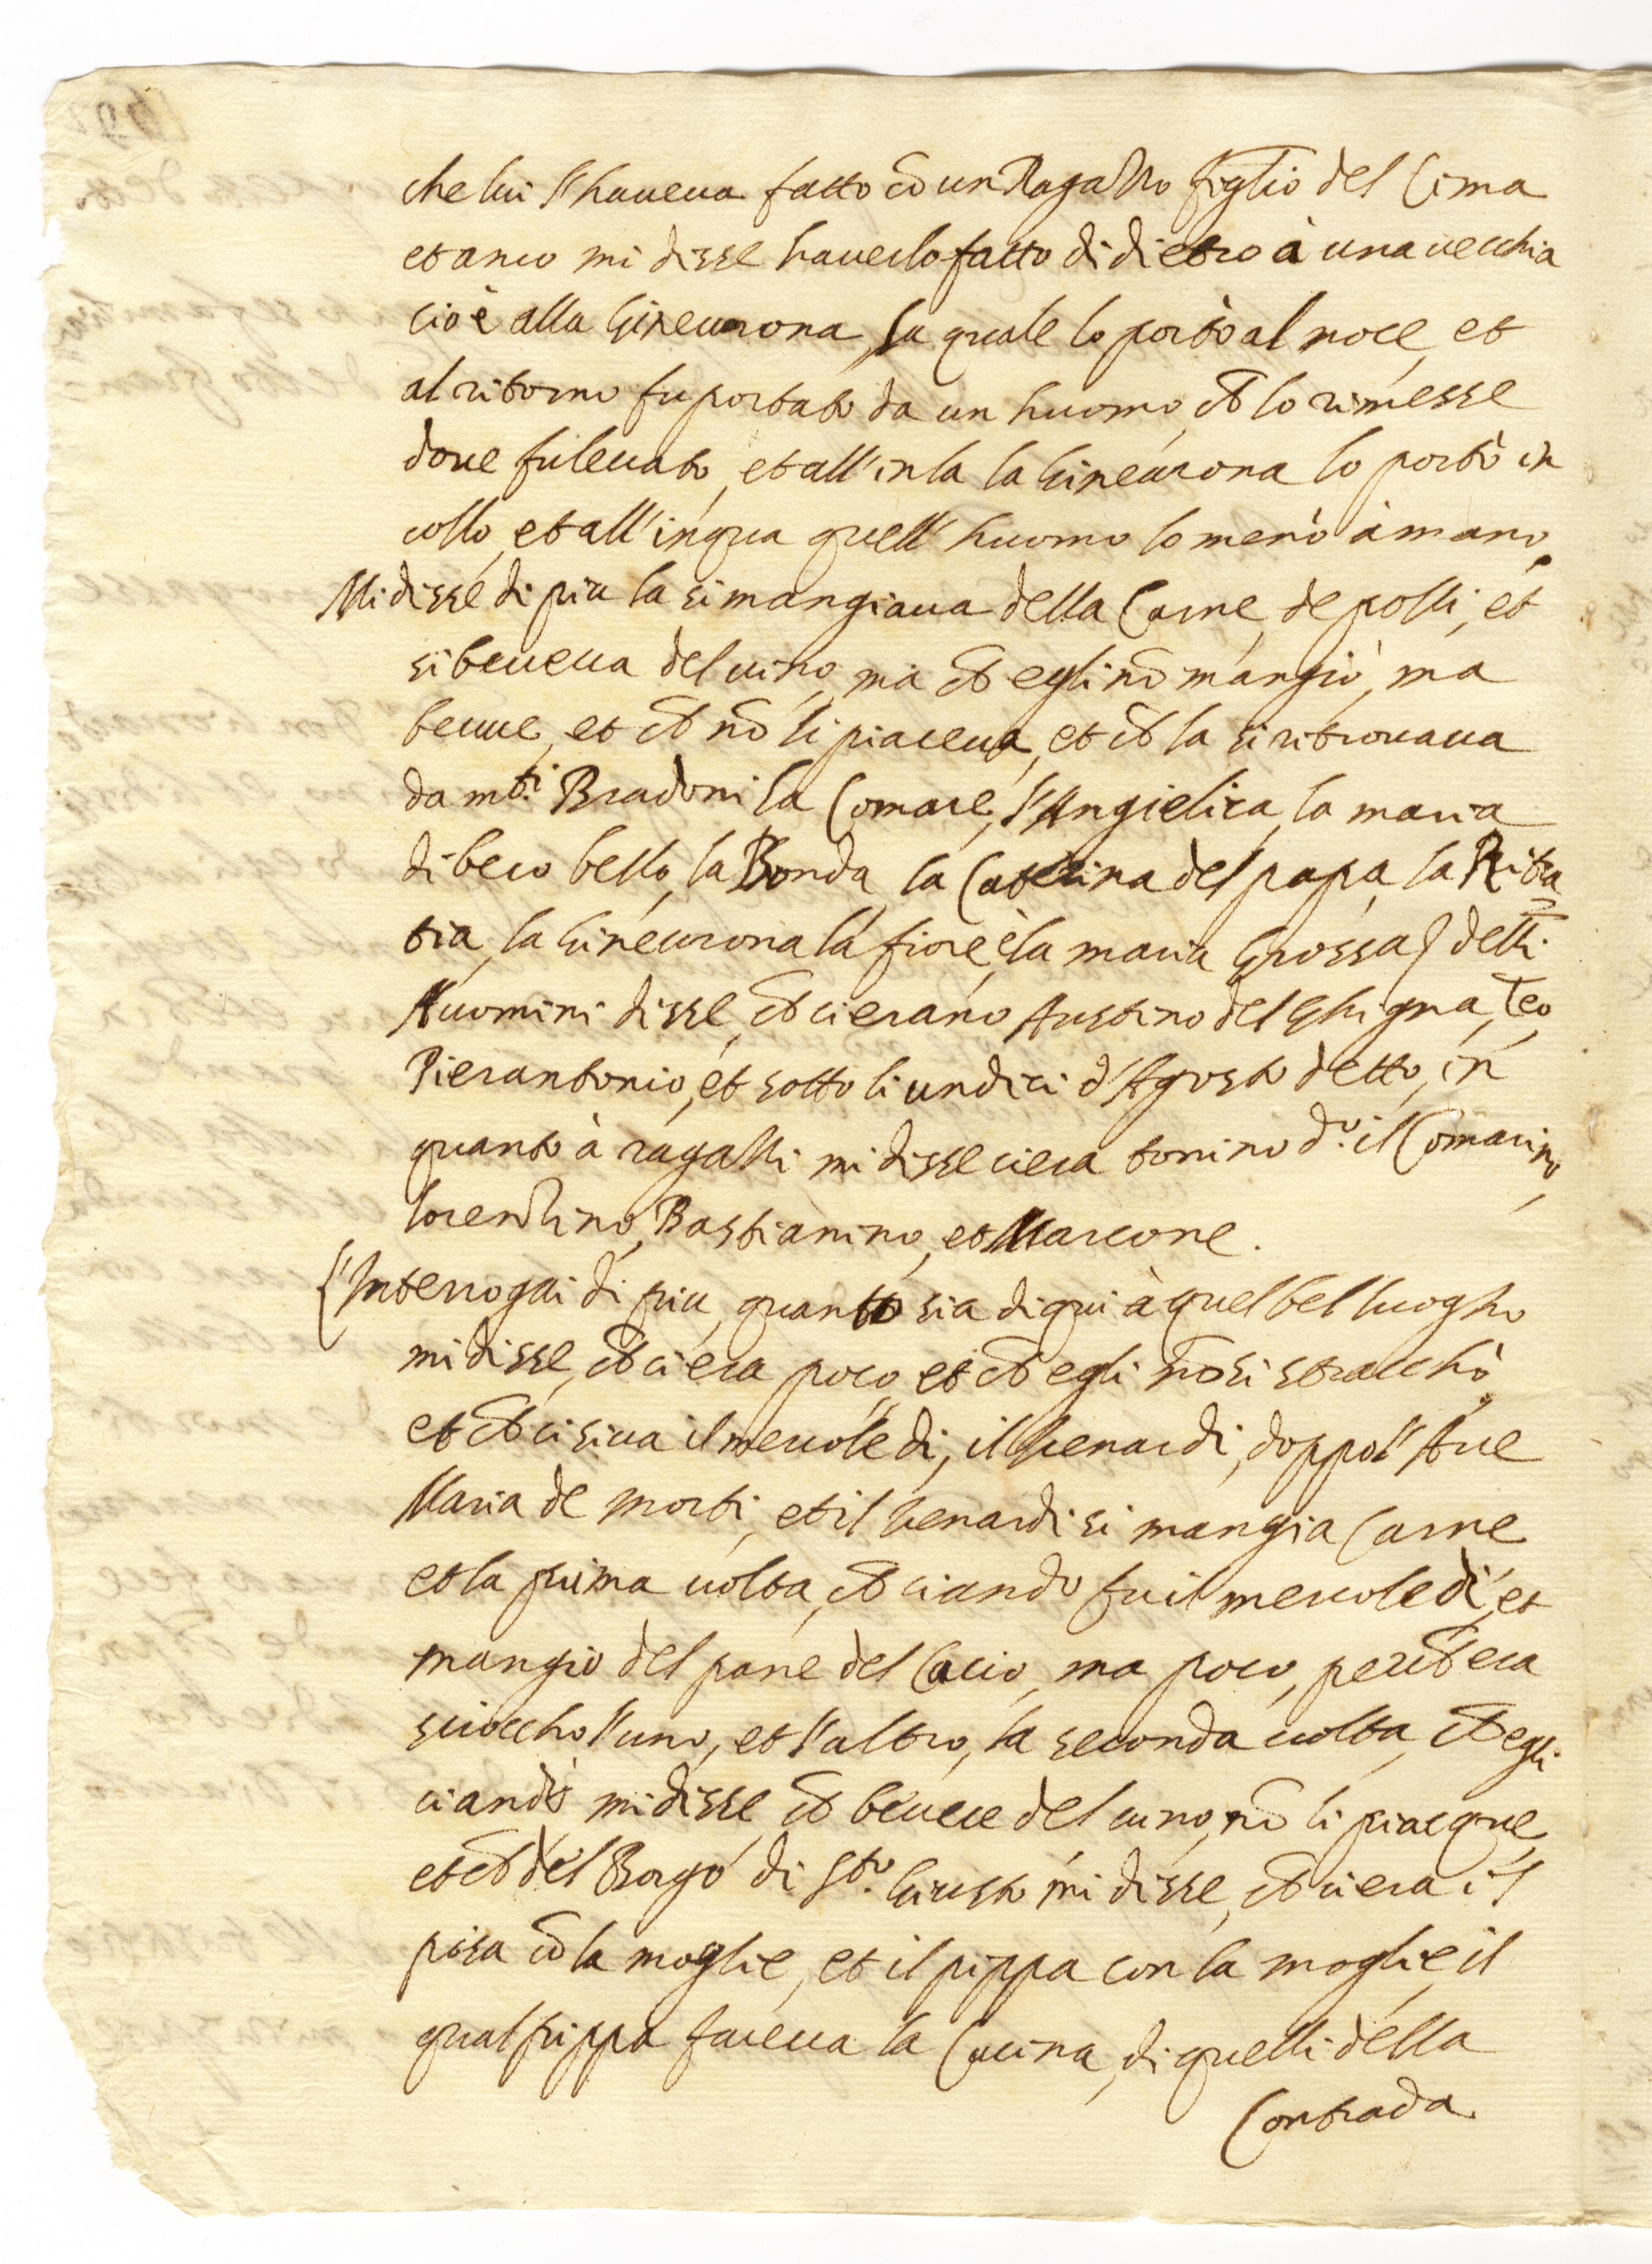 che lui l'haueua fatto cō un Ragazzo figlio del Cima
et anco mi disse hauerlo fatto di dietro à una uecchia
cioè alla Gineurona, la quale lo portò al noce, et
al ritorno fu portato da un huomo, ch̄ lo rimesse
doue fù leuato, et all'in la la Gineurona lo portò in
collo, et all'in qua quell'huomo lo menò à mano.
Mi disse di più la si mangiaua della Carne, de polli, et
si beueua del uino, ma ch̄ egli nō mangiò, ma
beuue, et ch̄ nō li piaceua, et ch̄ la si ritrouaua
da mti. Bradoni la Comare, l'Angielica, la maria
di beco bello, la Bonda, la Caterina del papa, la Rita
tia, la Gineurona la fiore, e la maria Grossa, delli
Huomini disse, ch̄ ci erano Austino del Ghigna, Teo,
Pierantonio, et sotto li undici d'Agosto detto, in
quanto à ragazzi mi disse ci era tonino do. il Comarino,
lorenzino, Bastianino, et Marcone.
L'Interrogai di più, quanto sia di qui à quel bel luogho
mi disse, ch̄ ci era poco, et ch̄ egli nō si stracchò,
et ch̄ ci si ua il mercoledi, il Venardi, doppo l'Aue
Maria de morti, et il Venardi si mangia Carne
et la prima uolta, ch̄ ci andò fu il mercoledi, et
mangiò del pane del Cacio, ma poco, perch̄ era
scioccho l'uno, et l'altro, la seconda uolta, ch̄ egli
ci andò mi disse ch̄ beuue del uino, nō li piacque,
et ch̄ del Borgo di Sto. Giusto mi disse, ch̄ ci era il
pisa cō la moglie, et il pippa con la moglie, il
qual pippa faceua la Cucina, di quelli della
Contrada